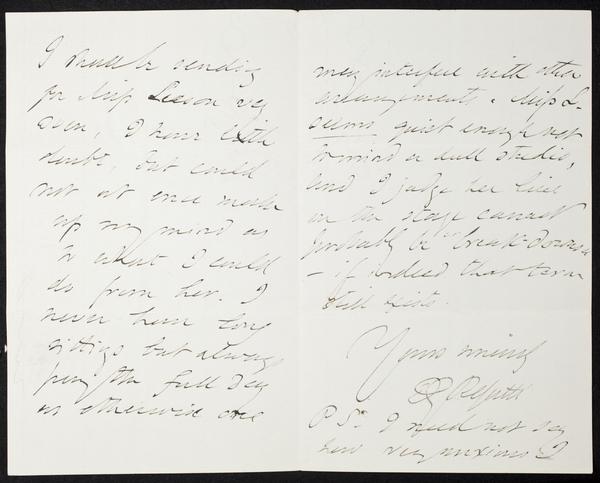 I shall be sending
for Miss Leeson very
soon, I have little
doubt, but could
not at once make
up my mind as
to what I could
do from her. I
never have long
sittings but always
pay the full day
as otherwise one
may interfere with other
arrangements. Miss L.
seems quiet enough not
to mind a dull studio,
and I judge her line
on the stage cannot
probably be "break-downs"
- if indeed that term
still exists.
Yours sincerely
DG Rossetti
PS. I need not say
how very anxious I